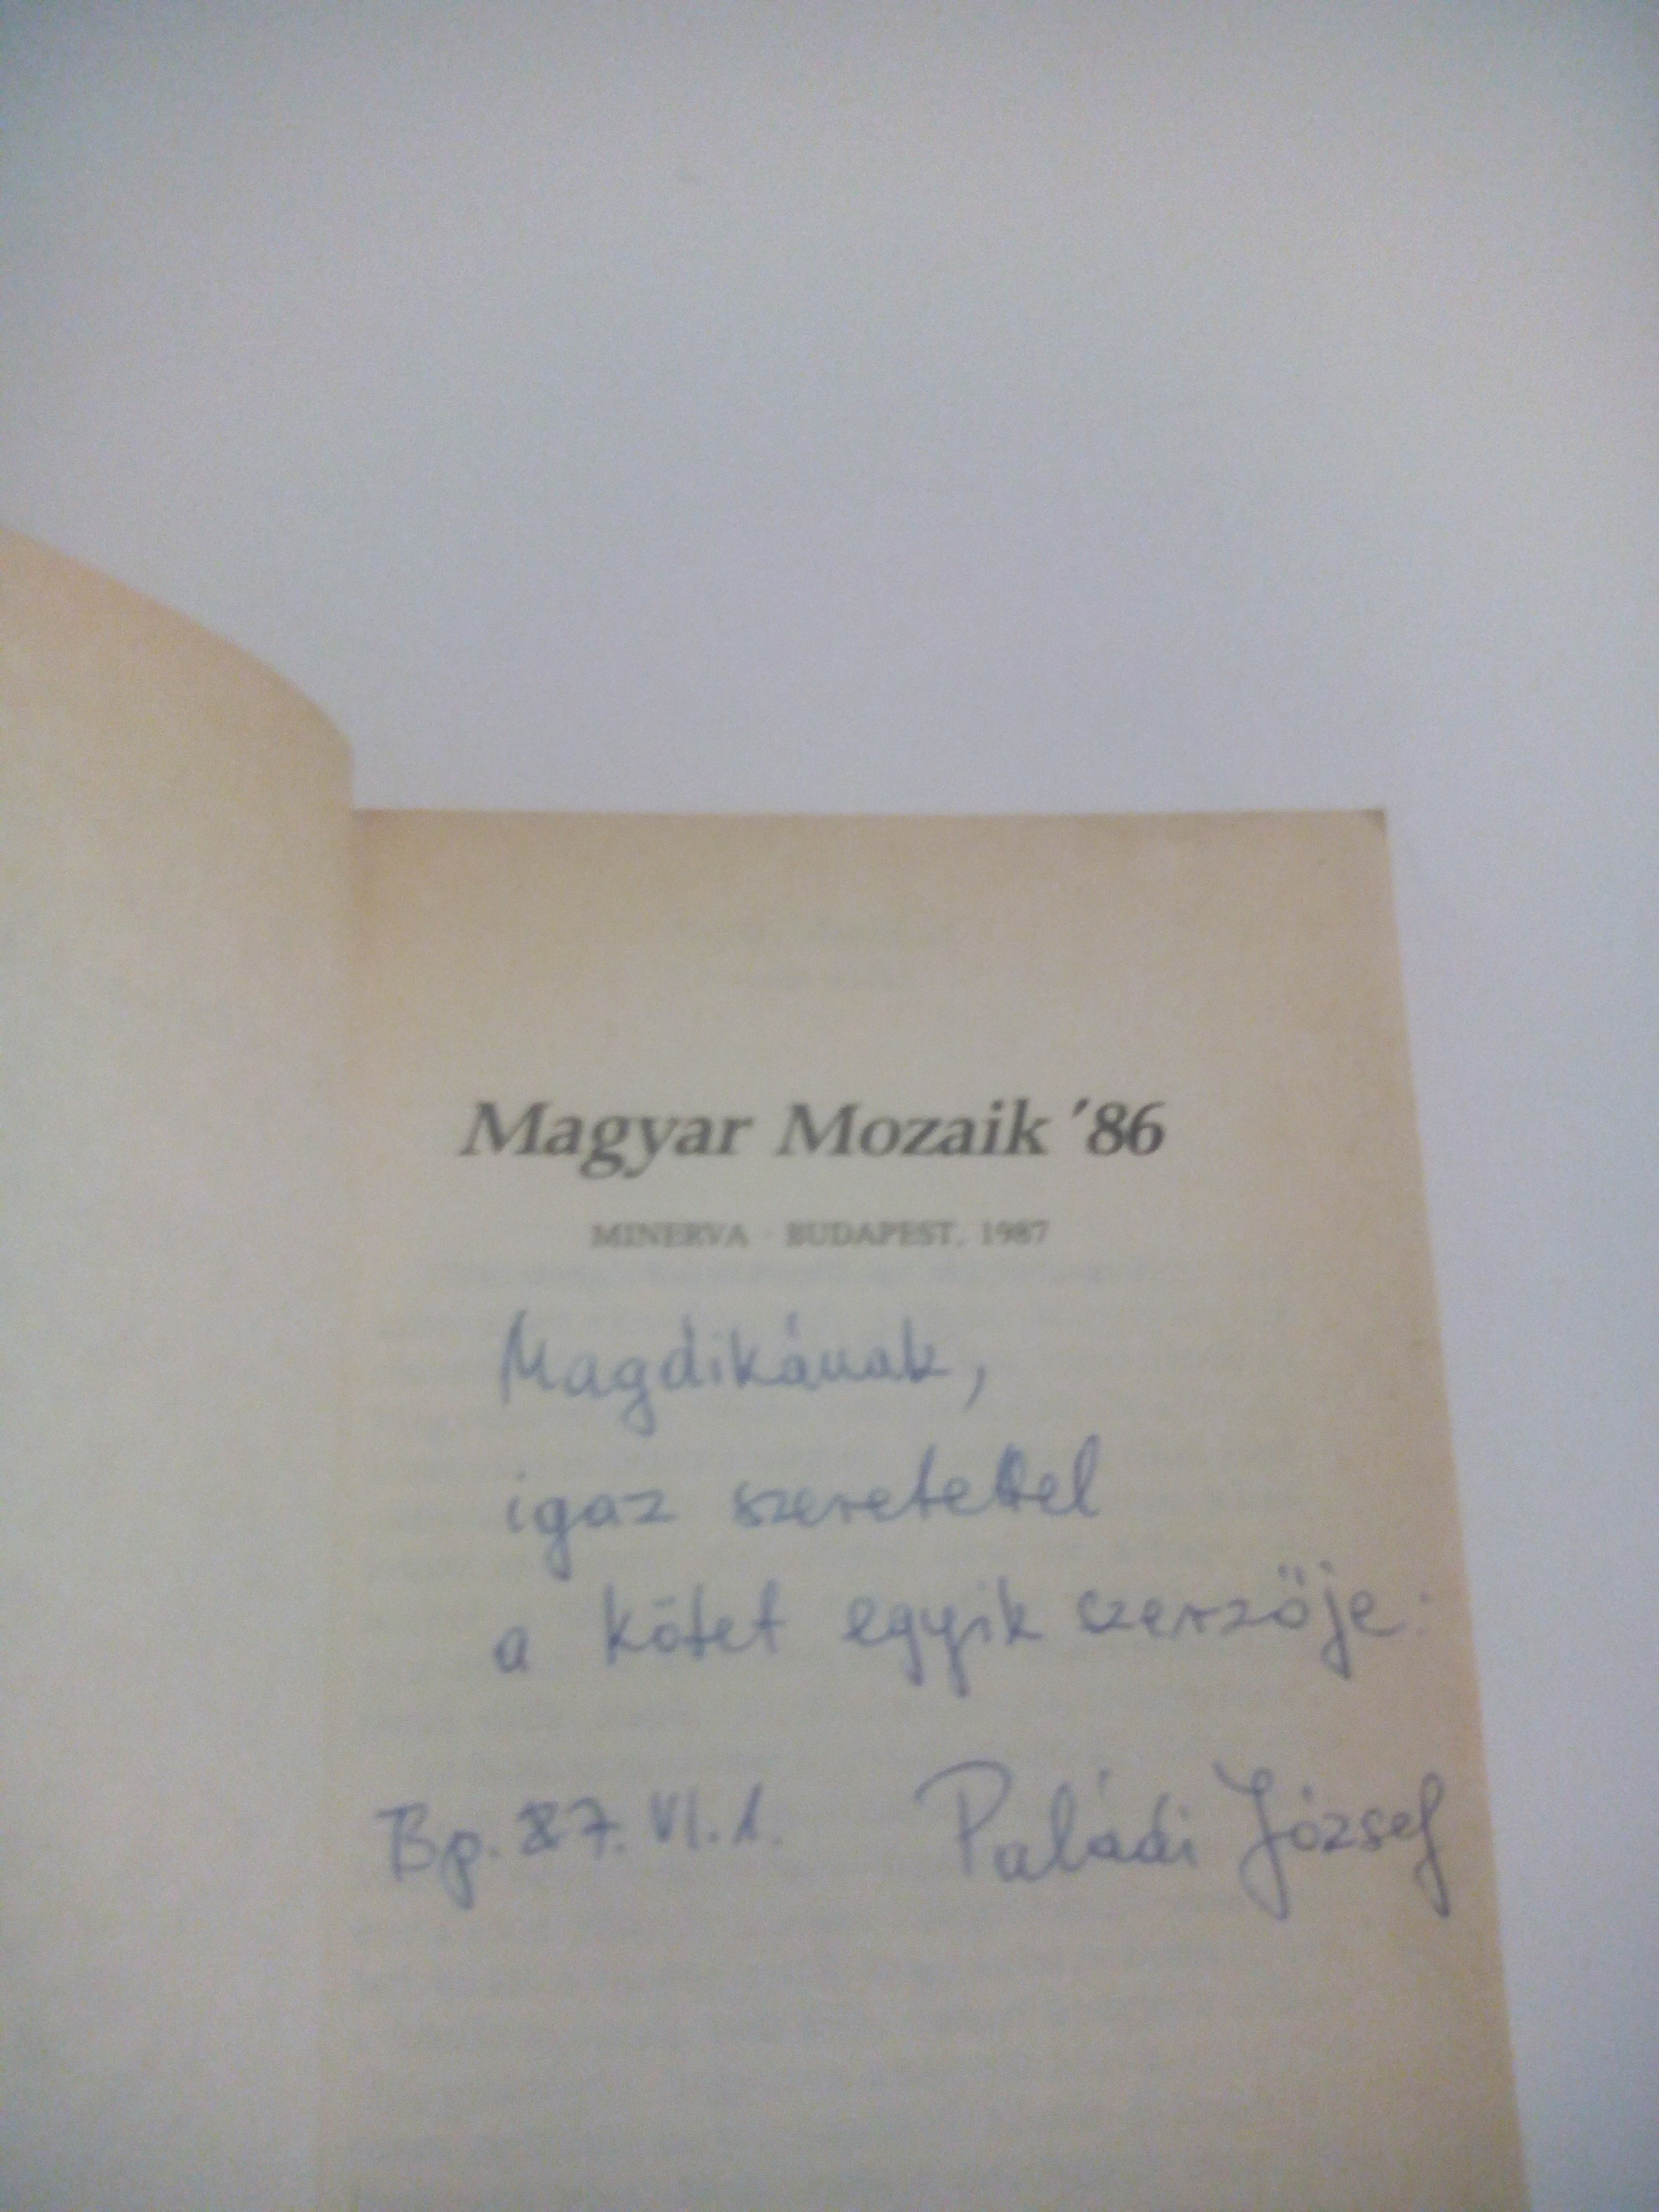 Magyar Mozaik '86
MINERVA · BUDAPEST, 1987
Magdikának,
igaz szeretettel
a kötet egyik szerzője:
Bp. 87. VI. 1. Paládi József